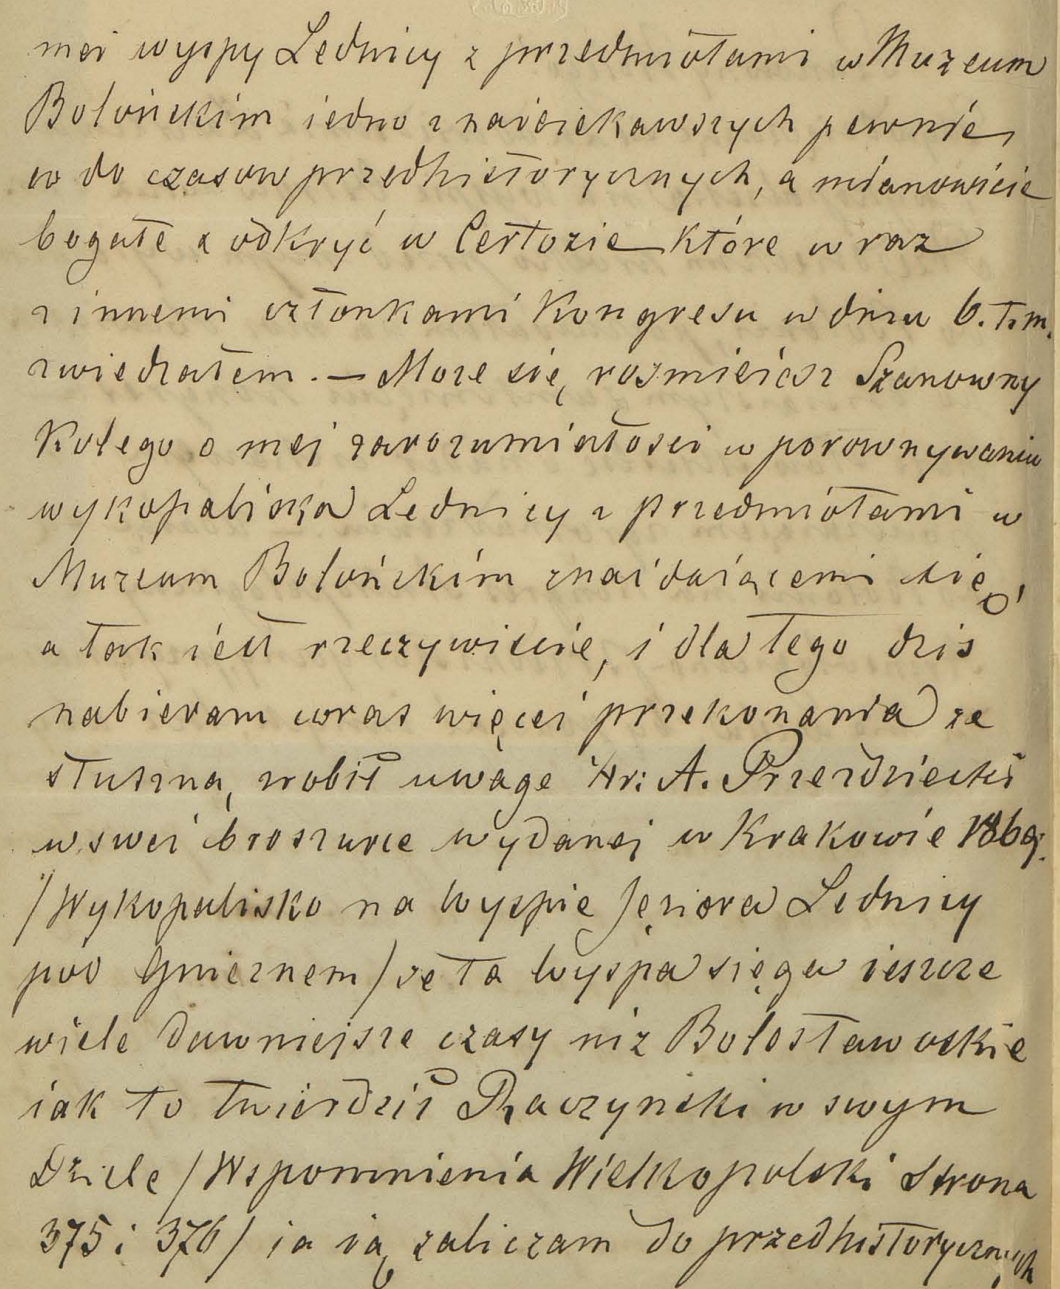 mei wyspy Lednicy z przedmiotami w Muzeum
Bolońckim iedno z naiciekawszych pewnie,
w do czasow przedhistorycznych, a mianowicie
bogate z odkryć w Certozie które wraz
z innemi członkami Kongresu w dniu 6. t.m.
zwiedzałem. — Moze się rosmieiesz Szanowny
Kolego o mej zarozumiałosci w porownywaniu
wykopaliska Lednicy z przedmiotami w
Muzeum Bolońckim znaidaiącemi się,
a tak iest rzeczywiscie, i dla tego dzis
nabieram coras więcei przekonania ze
słuszną zrobił uwage Hr: A. Przezdziecki
w swei broszurce wydanej w Krakowie 1869.
/Wykopalisko na Wyspie Jęziora Lednicy
pod Gnieznem/ ze ta Wyspa sięga ieszcze
wiele dawniejsze czasy niz Bolesławoskie
iak to twierdził Raczynski w swym
Dziele /Wspomnienia Wielkopolski Strona
375 i 376/ ia ią zaliczam do przedhistorycznych